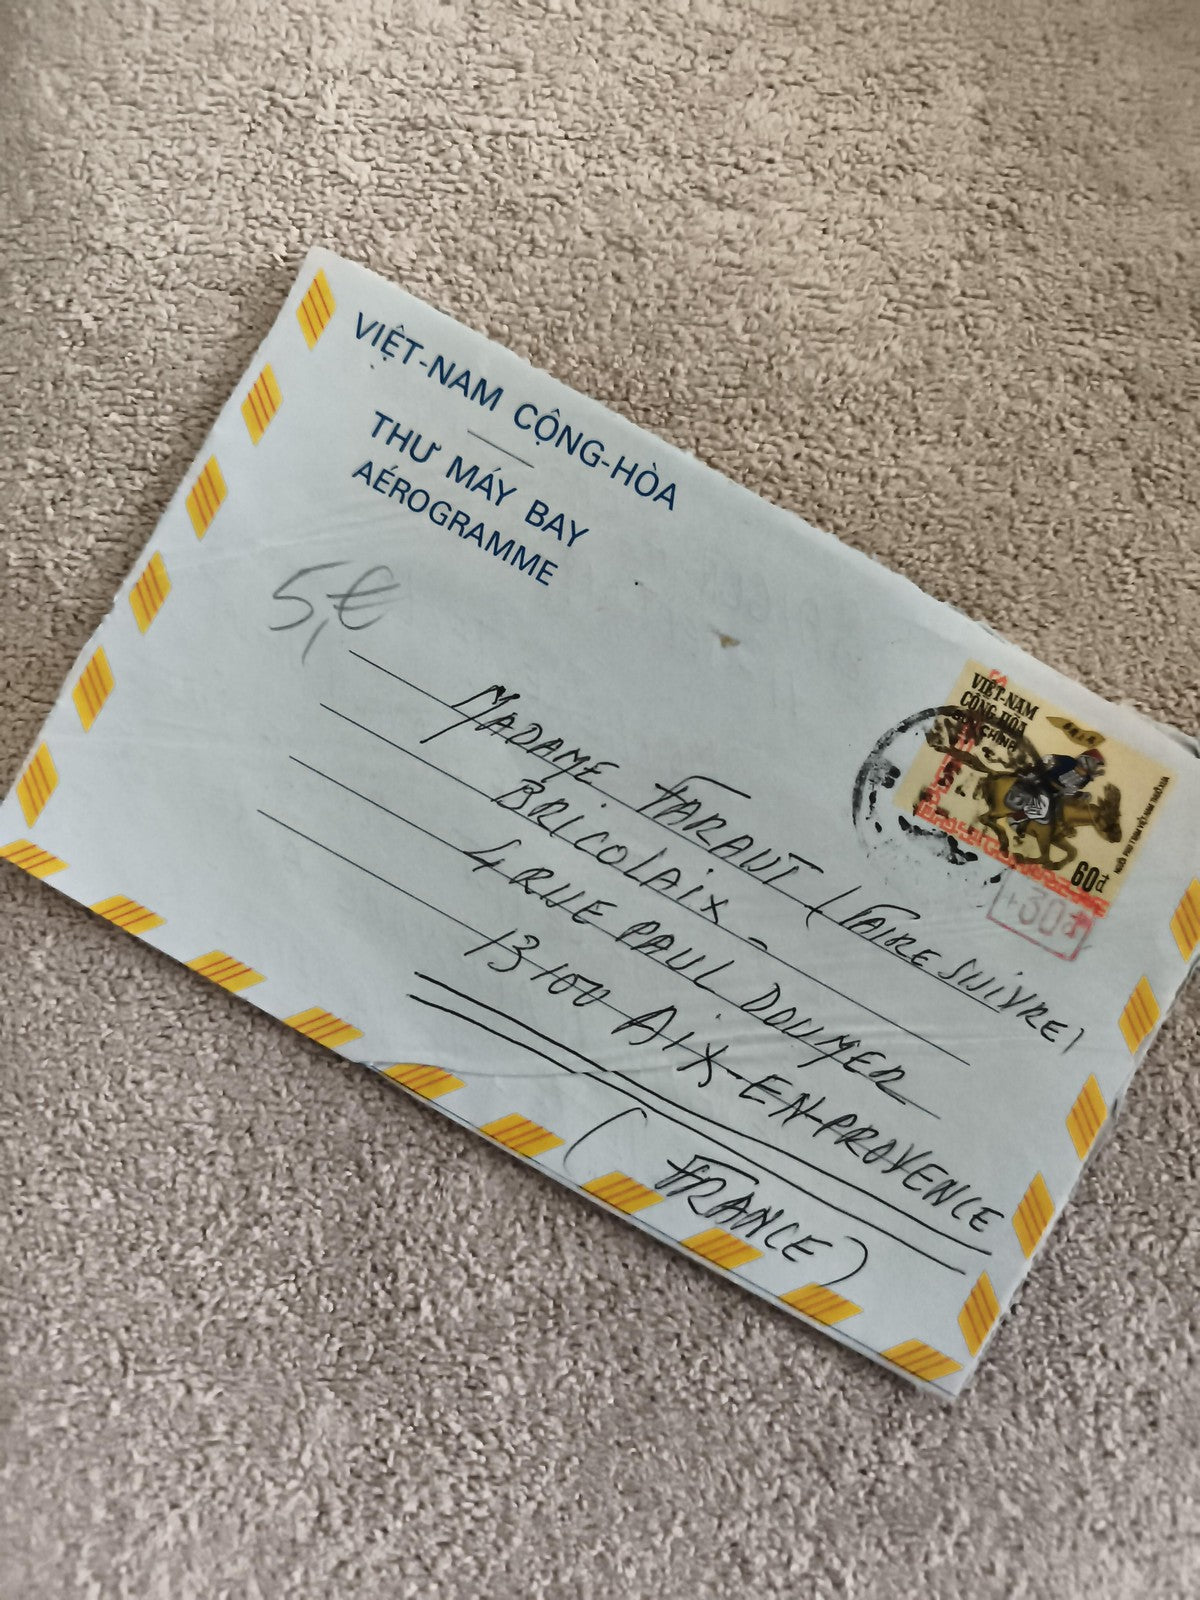 VIỆT-NAM CỘNG-HÒA
THƯ MÁY BAY
AÉROGRAMME
5,€
VIỆT-NAM
CỘNG-HÒA
BƯU-CHÍNH
NGƯỜI PHU TRẠM VIỆT-NAM THUỞ XƯA
60đ
+30đ
MADAME FARAUT (FAIRE SUIVRE)
BRICOLAIX -
4 RUE PAUL DOUMER
13100 AIX-EN-PROVENCE
(FRANCE)